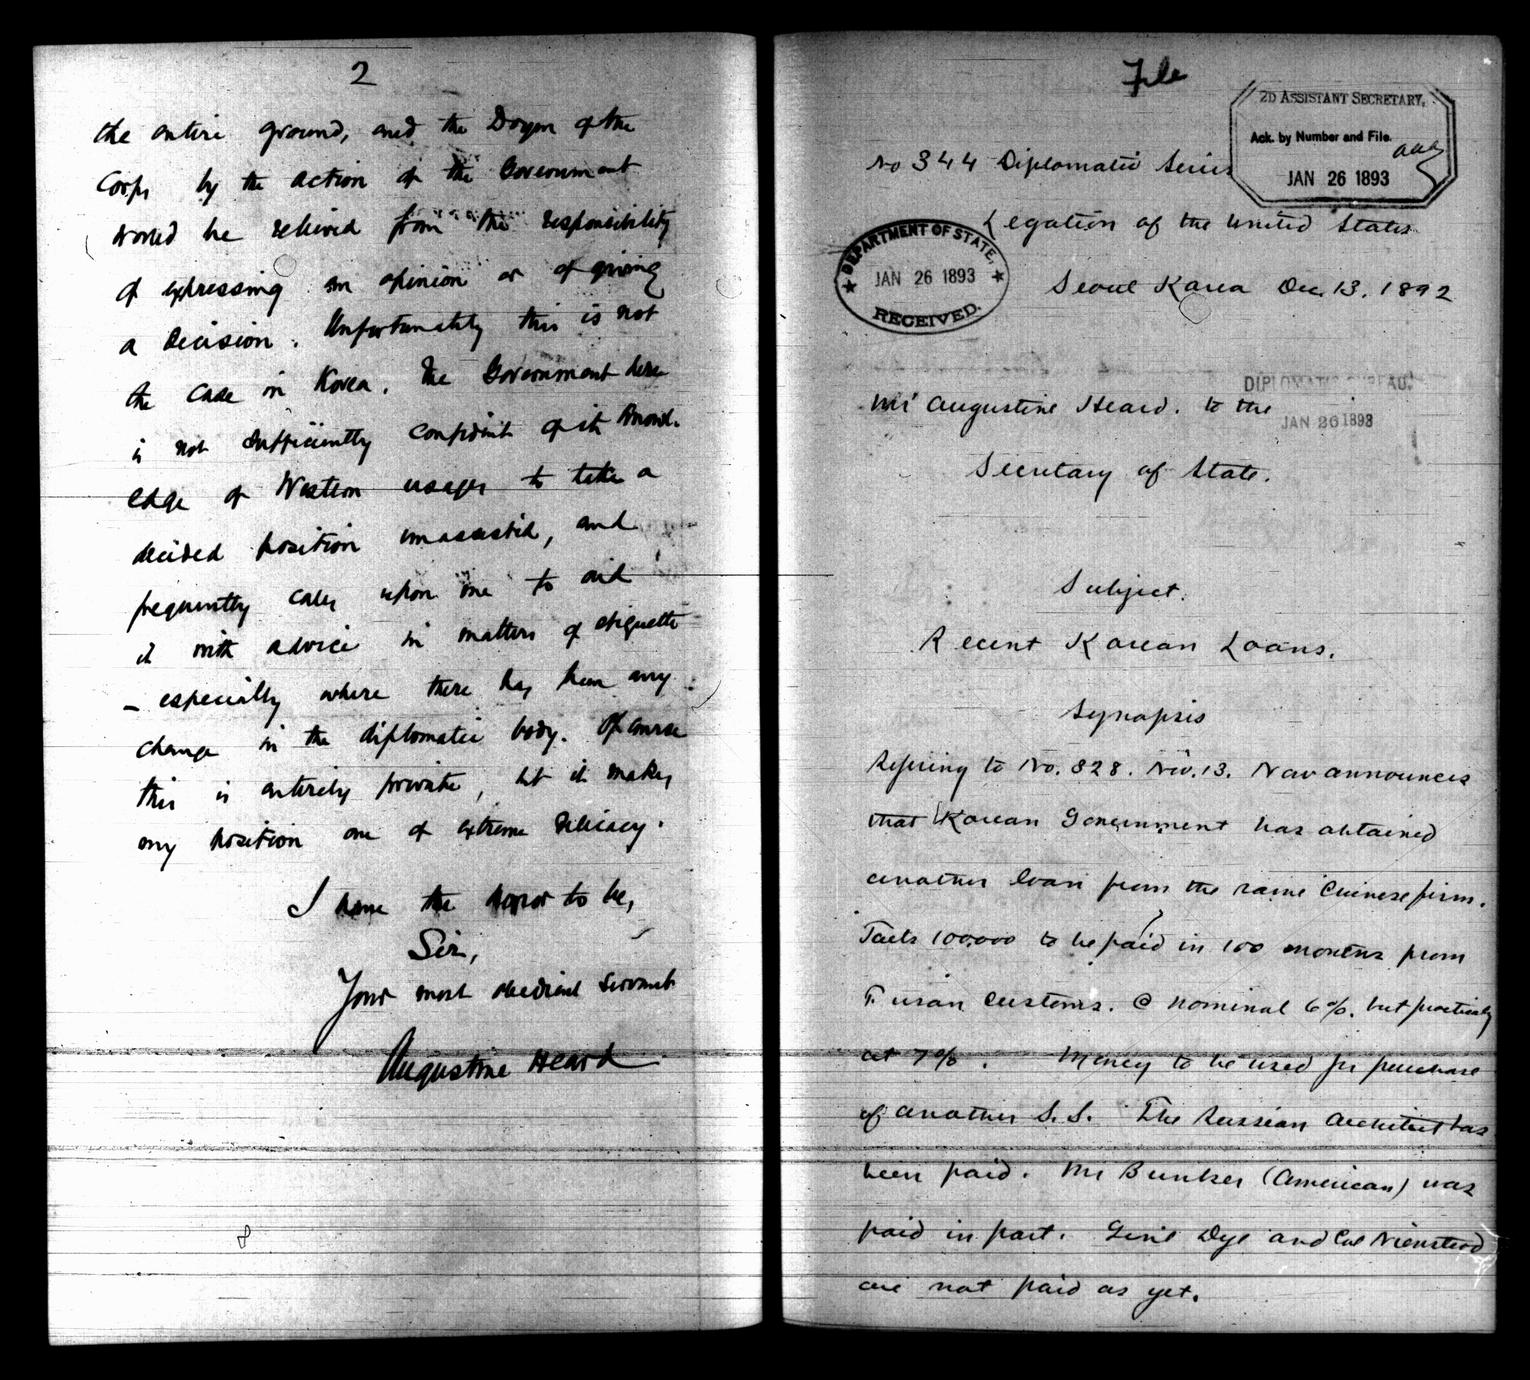 2
the entire ground, and the Doyen of the
Corps by the action of the Government
would be relieved from the responsibility
of expressing an opinion or of giving
a decision. Unfortunately this is not
the case in Korea. The Government here
is not sufficiently confident of its knowl-
edge of Western usages to take a
decided position unassisted, and
frequently calls upon me to aid
it with advice in matters of etiquette
– especially where there has been any
change in the diplomatic body. Of course
this is entirely private, but it makes
my position one of extreme delicacy.
I have the honor to be,
Sir,
Your most obedient servant
Augustine Heard
File
2D ASSISTANT SECRETARY,
Ack. by Number and File.
JAN 26 1893
No 344 Diplomatic Series
Legation of the United States
DEPARTMENT OF STATE,
JAN 26 1893
RECEIVED.
Seoul Korea Dec. 13. 1892
DIPLOMATIC BUREAU.
JAN 26 1893
Mr Augustine Heard. to the
Secretary of State.
Subject.
Recent Korean Loans.
Synopsis
Refering to No. 328. Nov. 13. Now announces
that Korean Government has obtained
another loan from the same Chinese firm.
Taels 100,000 to be paid in 100 months from
Fusan Customs. @ nominal 6%. but practically
at 7%. Money to be used for purchase
of another S.S. The Russian Architect has
been paid. Mr Bunker (American) was
paid in part. Genl Dye and Col Nienstead
are not paid as yet.